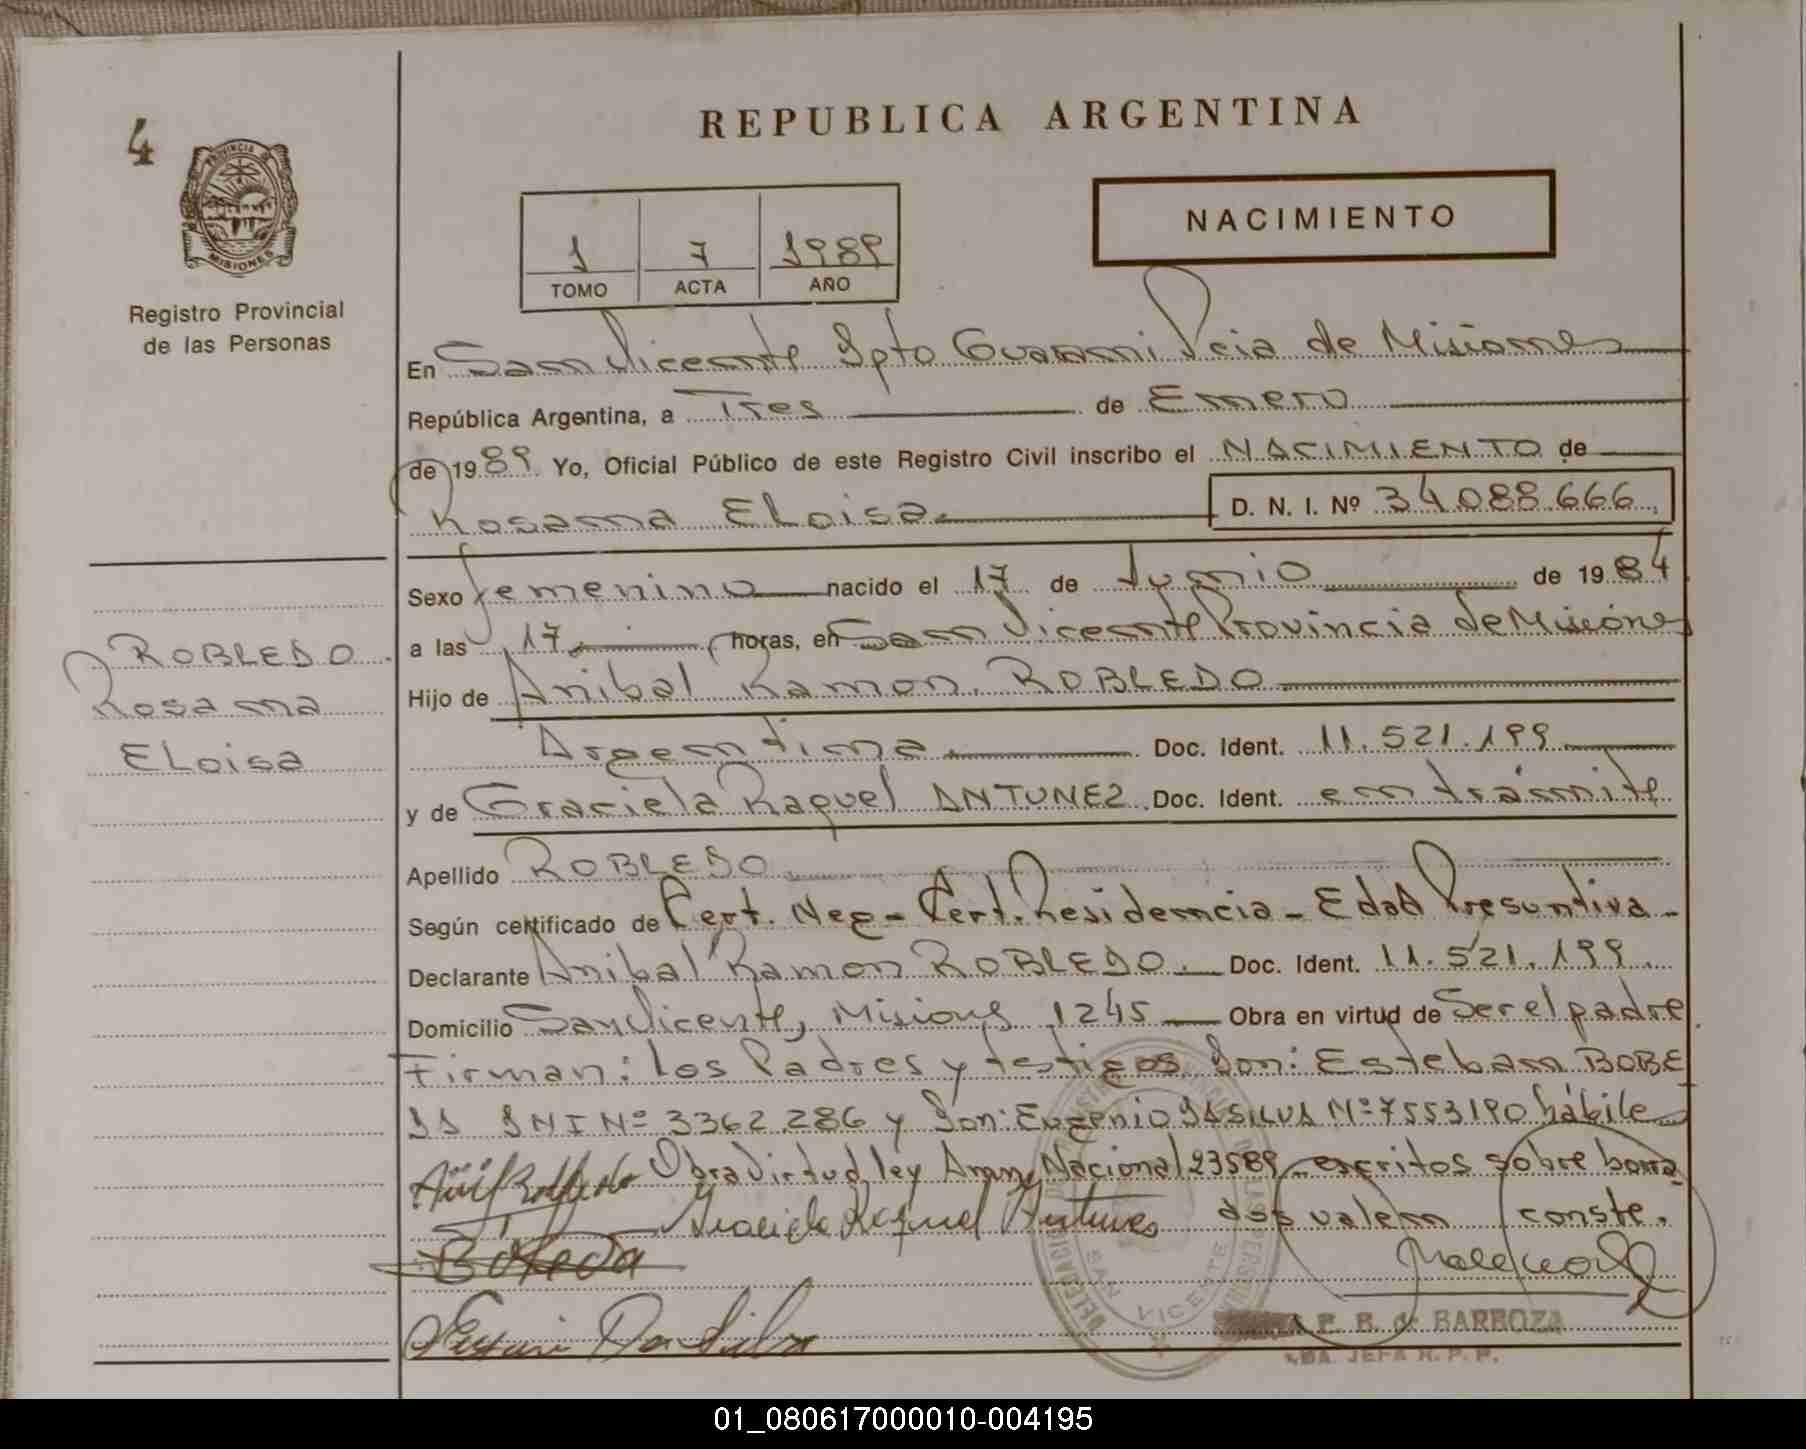 4
PROVINCIA DE
MISIONES
Registro Provincial
de las Personas
ROBLEDO
Rosana
ELoisa
REPUBLICA ARGENTINA
1 7 1989
TOMO ACTA AÑO
NACIMIENTO
En San Vicente Dpto Guarani Pcia de Misiones
República Argentina, a Tres de Enero
de 1989 Yo, Oficial Público de este Registro Civil inscribo el NACIMIENTO de
Rosana ELoisa D. N. I. Nº 34.088.666
Sexo femenino nacido el 17 de Junio de 1984
a las 17 horas, en San Vicente Provincia de Misiones
Hijo de Anibal Ramon ROBLEDO
Argentina Doc. Ident. 11.521.199
y de Graciela Raquel ANTUNEZ Doc. Ident. en trámite
Apellido ROBLEDO
Según certificado de Cert. Neg - Cert. Residencia - Edad Presuntiva -
Declarante Anibal Ramon ROBLEDO. Doc. Ident. 11.521.199
Domicilio San Vicente, Misiones 1245 Obra en virtud de Ser el padre
Firman: los Padres y testigos Don: Esteban BOBE
DA DNI Nº 3362.286 y Don: Eugenio DASILVA Nº 7553190 hábiles
Obra Virtud ley Nacional 23589 escritos sobre borra
Graciela Raquel Antunes dos valen conste.
Bobeda
Da Silva
DELEGACION
SAN VICENTE
P. B. de BARBOZA
JEFA R. P. P.
01_080617000010-004195